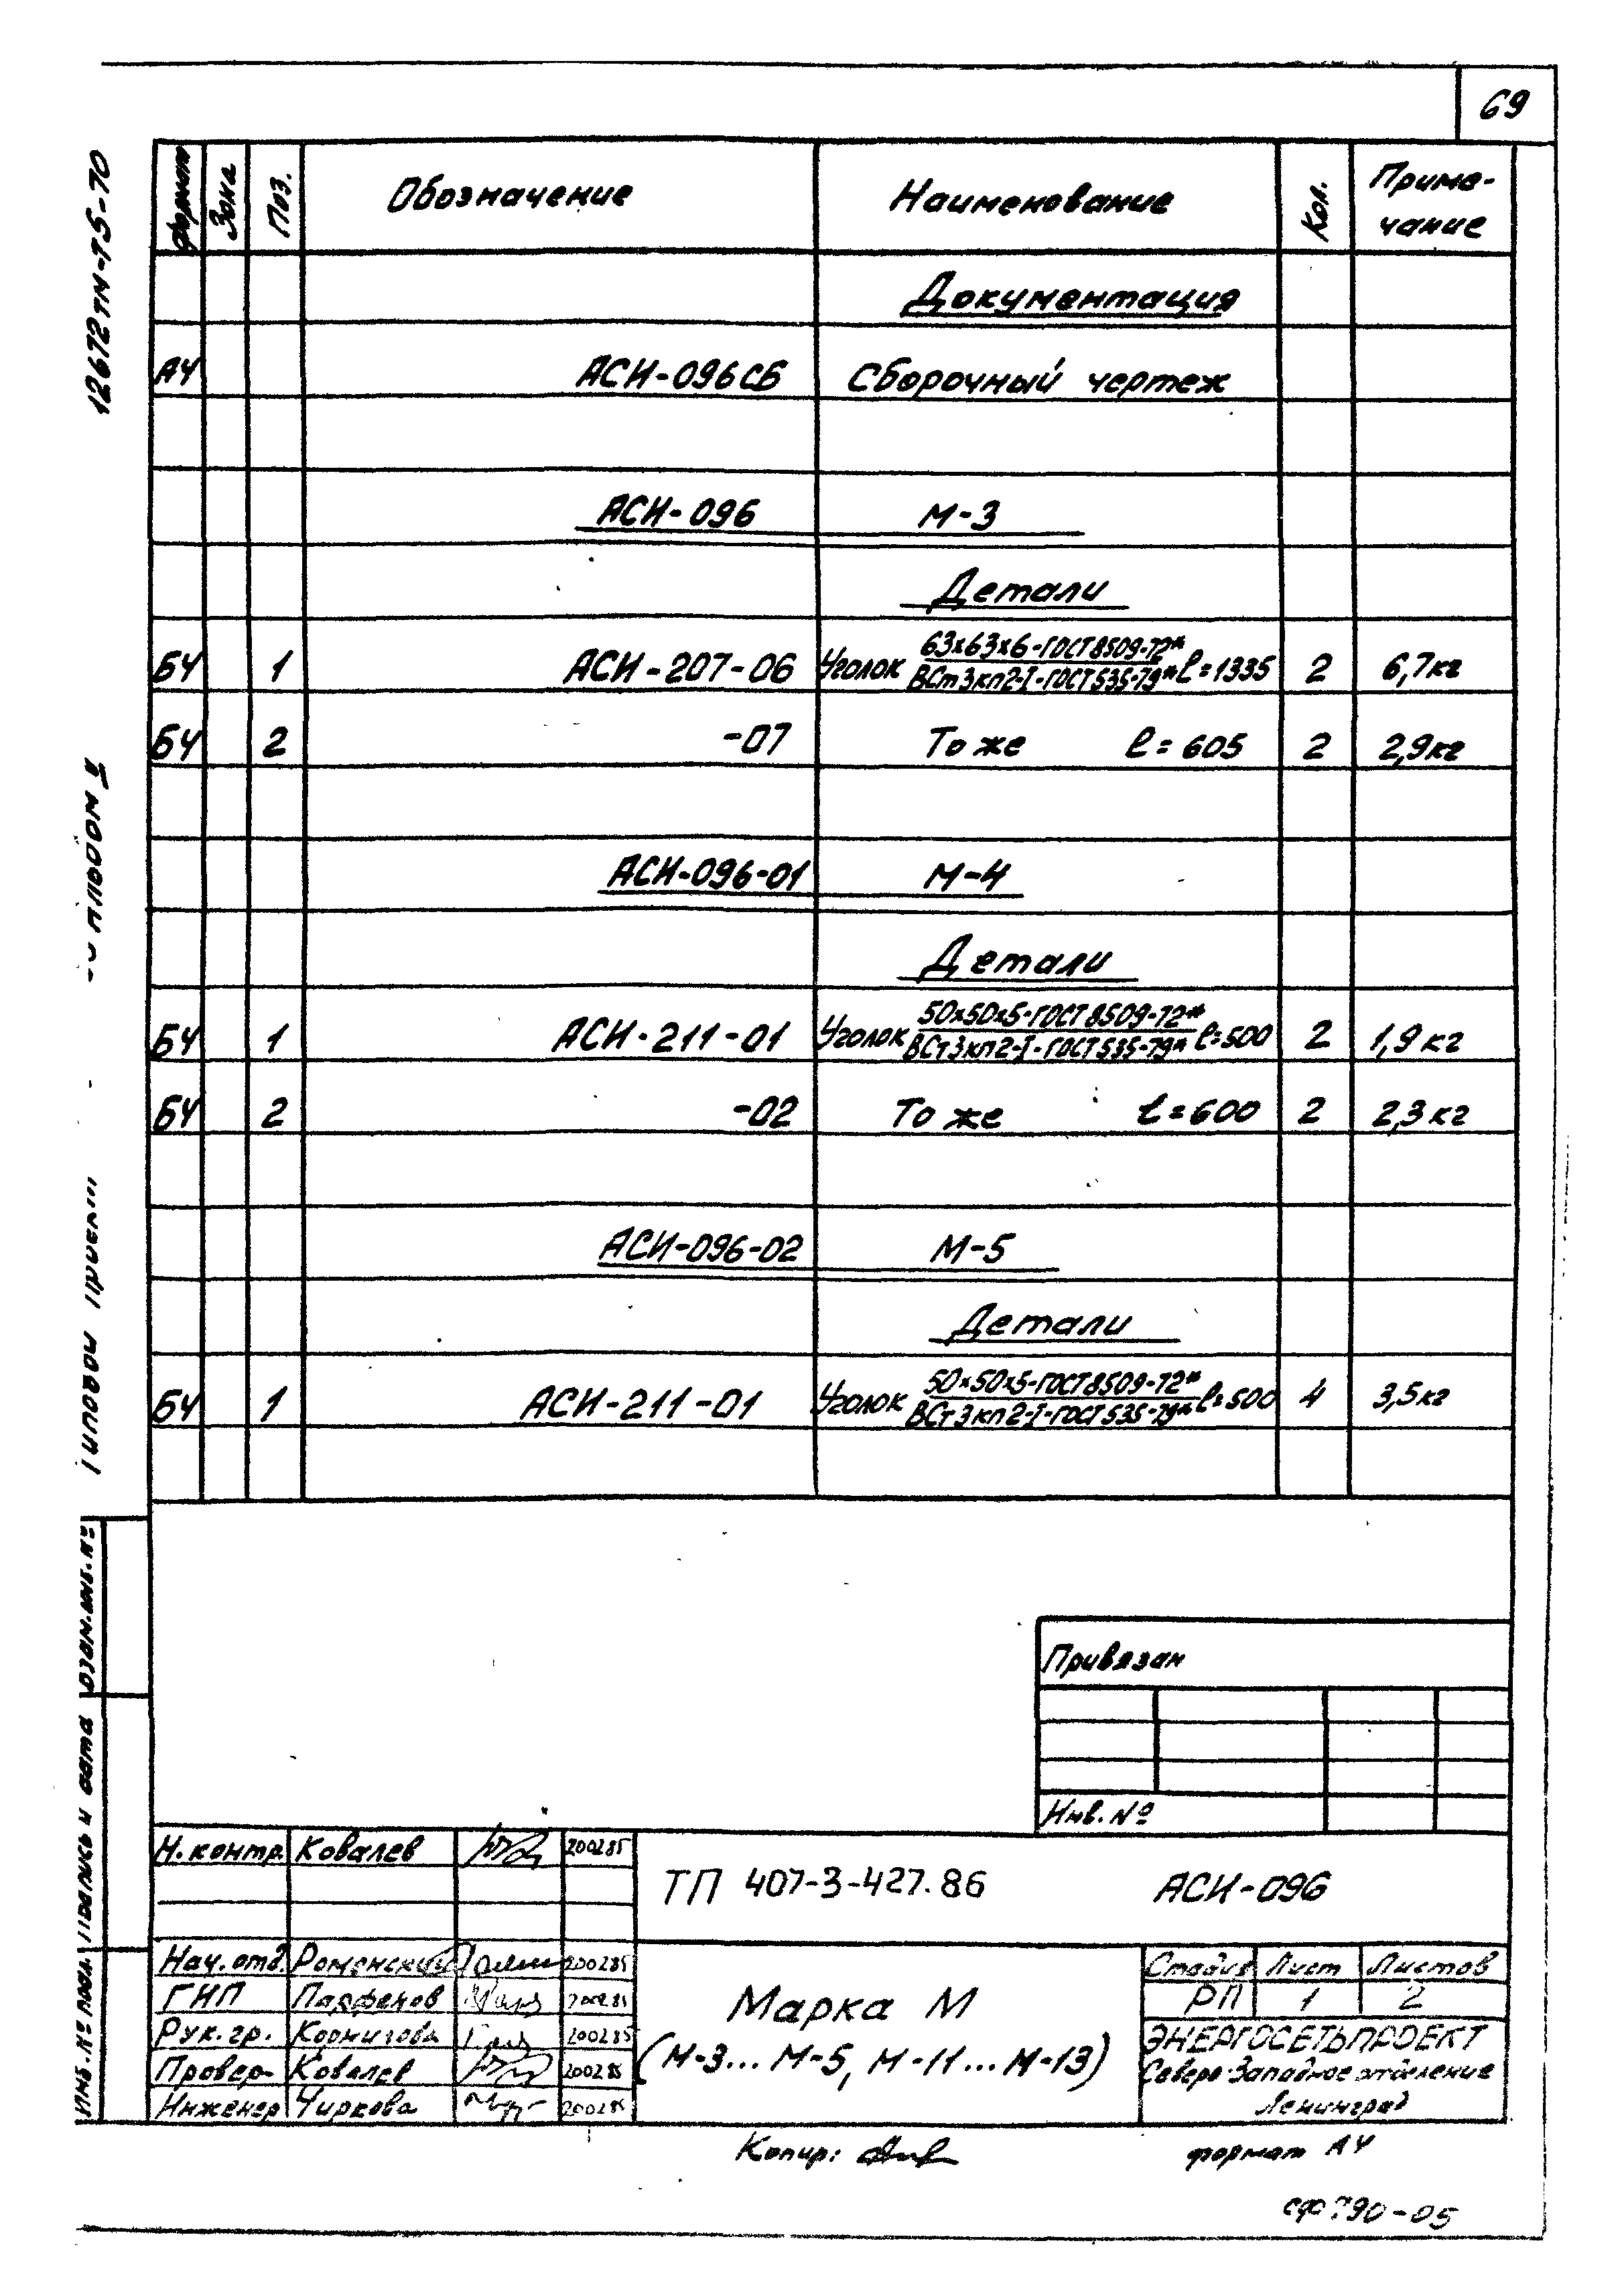 69
Формат Зона Поз. Обозначение Наименование Кол. Приме-
чание
Документация
А4 АСИ-096СБ Сборочный чертеж
АСИ-096 М-3
Детали
БЧ 1 АСИ-207-06 Уголок 63х63х6-ГОСТ8509-72* / ВСт3кп2-I-ГОСТ535-79* ℓ=1335 2 6,7кг
БЧ 2 -07 То же ℓ=605 2 2,9кг
АСИ-096-01 М-4
Детали
БЧ 1 АСИ-211-01 Уголок 50х50х5-ГОСТ8509-72* / ВСт3кп2-I-ГОСТ535-79* ℓ=500 2 1,9кг
БЧ 2 -02 То же ℓ=600 2 2,3кг
АСИ-096-02 М-5
Детали
БЧ 1 АСИ-211-01 Уголок 50х50х5-ГОСТ8509-72* / ВСт3кп2-I-ГОСТ535-79* ℓ=500 4 3,5кг
12672тм-т5-70
Взам.инв.№
Подпись и дата
Инв.№ подл.
Привязан
Инв.№
Н.контр. Ковалев 200285
ТП 407-3-427.86 АСИ-096
Нач.отд. Роменский 200285
ГИП Парфенов
Рук.гр. 200285
Провер. Ковалев 200285
Инженер Чиркова 200285
Марка М
(М-3... М-5, М-11... М-13)
Стадия Лист Листов
РП 1 2
ЭНЕРГОСЕТЬПРОЕКТ
Северо-Западное отделение
Ленинград
Копир:
формат А4
-05